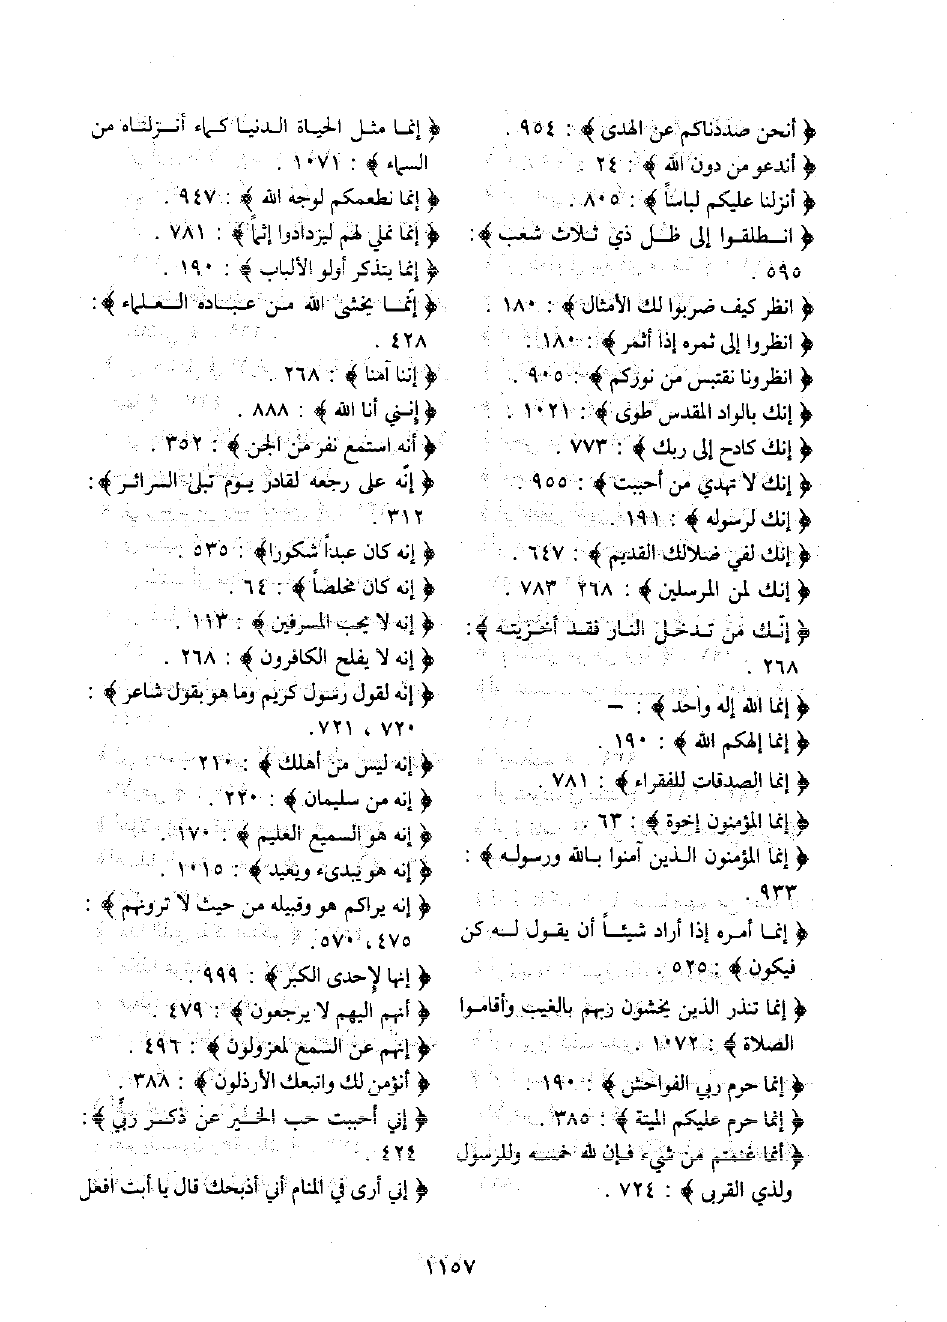 ﴿ أنحن صددناكم عن الهدى ﴾ : ٩٥٤ .
﴿ أندعو من دون الله ﴾ : ٢٤ .
﴿ أنزلنا عليكم لباساً ﴾ : ٨٠٥ .
﴿ انطلقوا إلى ظل ذي ثلاث شعب ﴾ :
٥٩٥ .
﴿ انظر كيف ضربوا لك الأمثال ﴾ : ١٨٠ .
﴿ انظروا إلى ثمره إذا أثمر ﴾ : ١٨٠ .
﴿ انظرونا نقتبس من نوركم ﴾ : ٩٠٥ .
﴿ إنك بالواد المقدس طوى ﴾ : ١٠٢١ .
﴿ إنك كادح إلى ربك ﴾ : ٧٧٣ .
﴿ إنك لا تهدي من أحببت ﴾ : ٩٥٥ .
﴿ إنك لرسوله ﴾ : ١٩١ .
﴿ إنك لفي ضلالك القديم ﴾ : ٦٤٧ .
﴿ إنك لمن المرسلين ﴾ : ٢٦٨ ٧٨٣ .
﴿ إنّك من تدخل النار فقد أخزيته ﴾ :
٢٦٨ .
﴿ إنما الله إله واحد ﴾ : –
﴿ إنما إلهكم الله ﴾ : ١٩٠ .
﴿ إنما الصدقات للفقراء ﴾ : ٧٨١ .
﴿ إنما المؤمنون إخوة ﴾ : ٦٣ .
﴿ إنما المؤمنون الذين آمنوا بالله ورسوله ﴾ :
٩٣٣ .
﴿ إنما أمره إذا أراد شيئاً أن يقول له كن
فيكون ﴾ : ٥٢٥ .
﴿ إنما تنذر الذين يخشون ربهم بالغيب وأقاموا
الصلاة ﴾ : ١٠٧٢ .
﴿ إنما حرم ربي الفواحش ﴾ : ١٩٠ .
﴿ إنما حرم عليكم الميتة ﴾ : ٣٨٥ .
﴿ أنما غنمتم من شيء فإن لله خمسه وللرسول
ولذي القربى ﴾ : ٧٢٤ .
﴿ إنما مثل الحياة الدنيا كماء أنزلناه من
السماء ﴾ : ١٠٧١ .
﴿ إنما نطعمكم لوجه الله ﴾ : ٩٤٧ .
﴿ إنما نملي لهم ليزدادوا إثماً ﴾ : ٧٨١ .
﴿ إنما يتذكر أولو الألباب ﴾ : ١٩٠ .
﴿ إنّما يخشى الله من عباده العلماء ﴾ :
٤٢٨ .
﴿ إننا آمنا ﴾ : ٢٦٨ .
﴿ إنني أنا الله ﴾ : ٨٨٨ .
﴿ أنه استمع نفر من الجن ﴾ : ٣٥٢ .
﴿ إنّه على رجعه لقادر يوم تبلى السرائر ﴾ :
٣١٢ .
﴿ إنه كان عبداً شكورا ﴾ : ٥٣٥ .
﴿ إنه كان مخلصاً ﴾ : ٦٤ .
﴿ إنه لا يحب المسرفين ﴾ : ١١٣ .
﴿ إنه لا يفلح الكافرون ﴾ : ٢٦٨ .
﴿ إنه لقول رسول كريم وما هو بقول شاعر ﴾ :
٧٢٠ ، ٧٢١.
﴿ إنه ليس من أهلك ﴾ : ٢١٠ .
﴿ إنه من سليمان ﴾ : ٢٢٠ .
﴿ إنه هو السميع العليم ﴾ : ١٧٠ .
﴿ إنه هو يبدىء ويعيد ﴾ : ١٠١٥ .
﴿ إنه يراكم هو وقبيله من حيث لا ترونهم ﴾ :
٤٧٥، ٥٧٠.
﴿ إنها لإحدى الكبر ﴾ : ٩٩٩ .
﴿ أنهم اليهم لا يرجعون ﴾ : ٤٧٩ .
﴿ إنهم عن السمع لمعزولون ﴾ : ٤٩٦ .
﴿ أنؤمن لك واتبعك الأرذلون ﴾ : ٣٨٨ .
﴿ إني أحببت حب الخير عن ذكر ربّي ﴾ :
٤٢٤ .
﴿ إني أرى في المنام أني أذبحك قال يا أبت افعل
١١٥٧